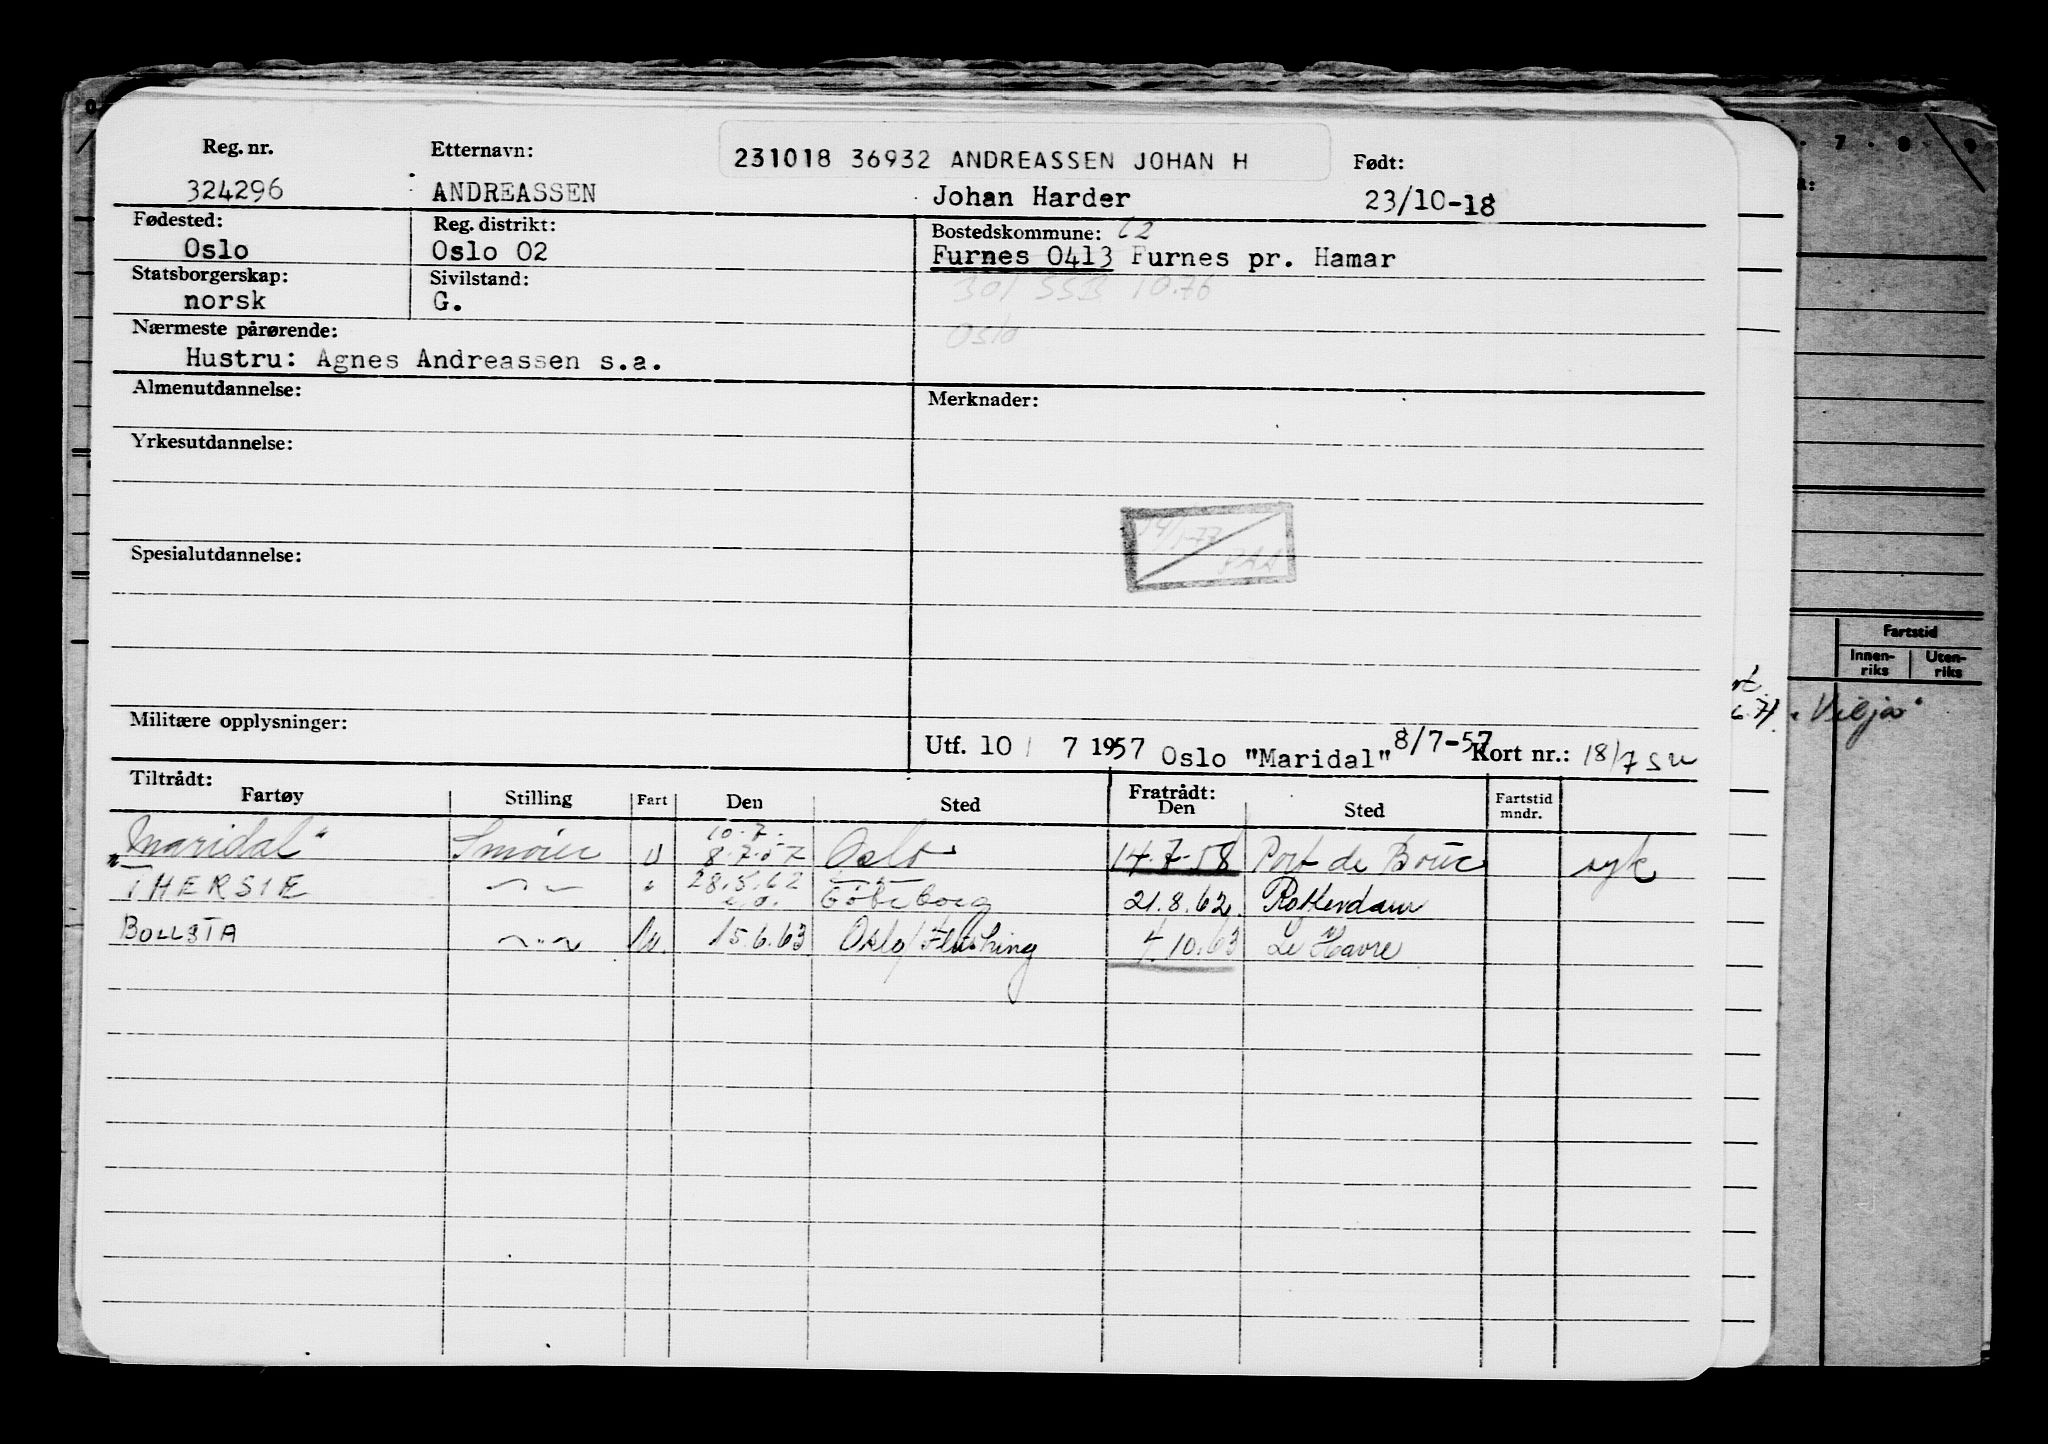 Reg. nr. Etternavn: 231018 36932 ANDREASSEN JOHAN H Født:
324296 ANDREASSEN Johan Harder 23/10-18
Fødested: Reg. distrikt: Bostedskommune: 62
Oslo Oslo 02 Furnes 0413 Furnes pr. Hamar
Statsborgerskap: Sivilstand: 301 SSB 10.76
norsk G.
Nærmeste pårørende: Oslo
Hustru: Agnes Andreassen s.a.
Almenutdannelse: Merknader:
Yrkesutdannelse:
Spesialutdannelse:
Militære opplysninger:
Utf. 10 / 7 1957 Oslo "Maridal" 8/7-57 Kort nr.: 18/7
Tiltrådt: Fratrådt:
Fartøy Stilling Fart Den Sted Den Sted Fartstid mndr.
10.7.
"Maridal" Smører U 8.7.57 Oslo 14.7-58 Port de Bouc syk
THERSIE 28.5.62 Göteborg 21.8.62 Rotterdam
BOLLSTA 15.6.63 Oslo/Flushing 4.10.63 Le Havre
7 8 9
Fartstid
Innen-riks Uten-riks
"Vilja"